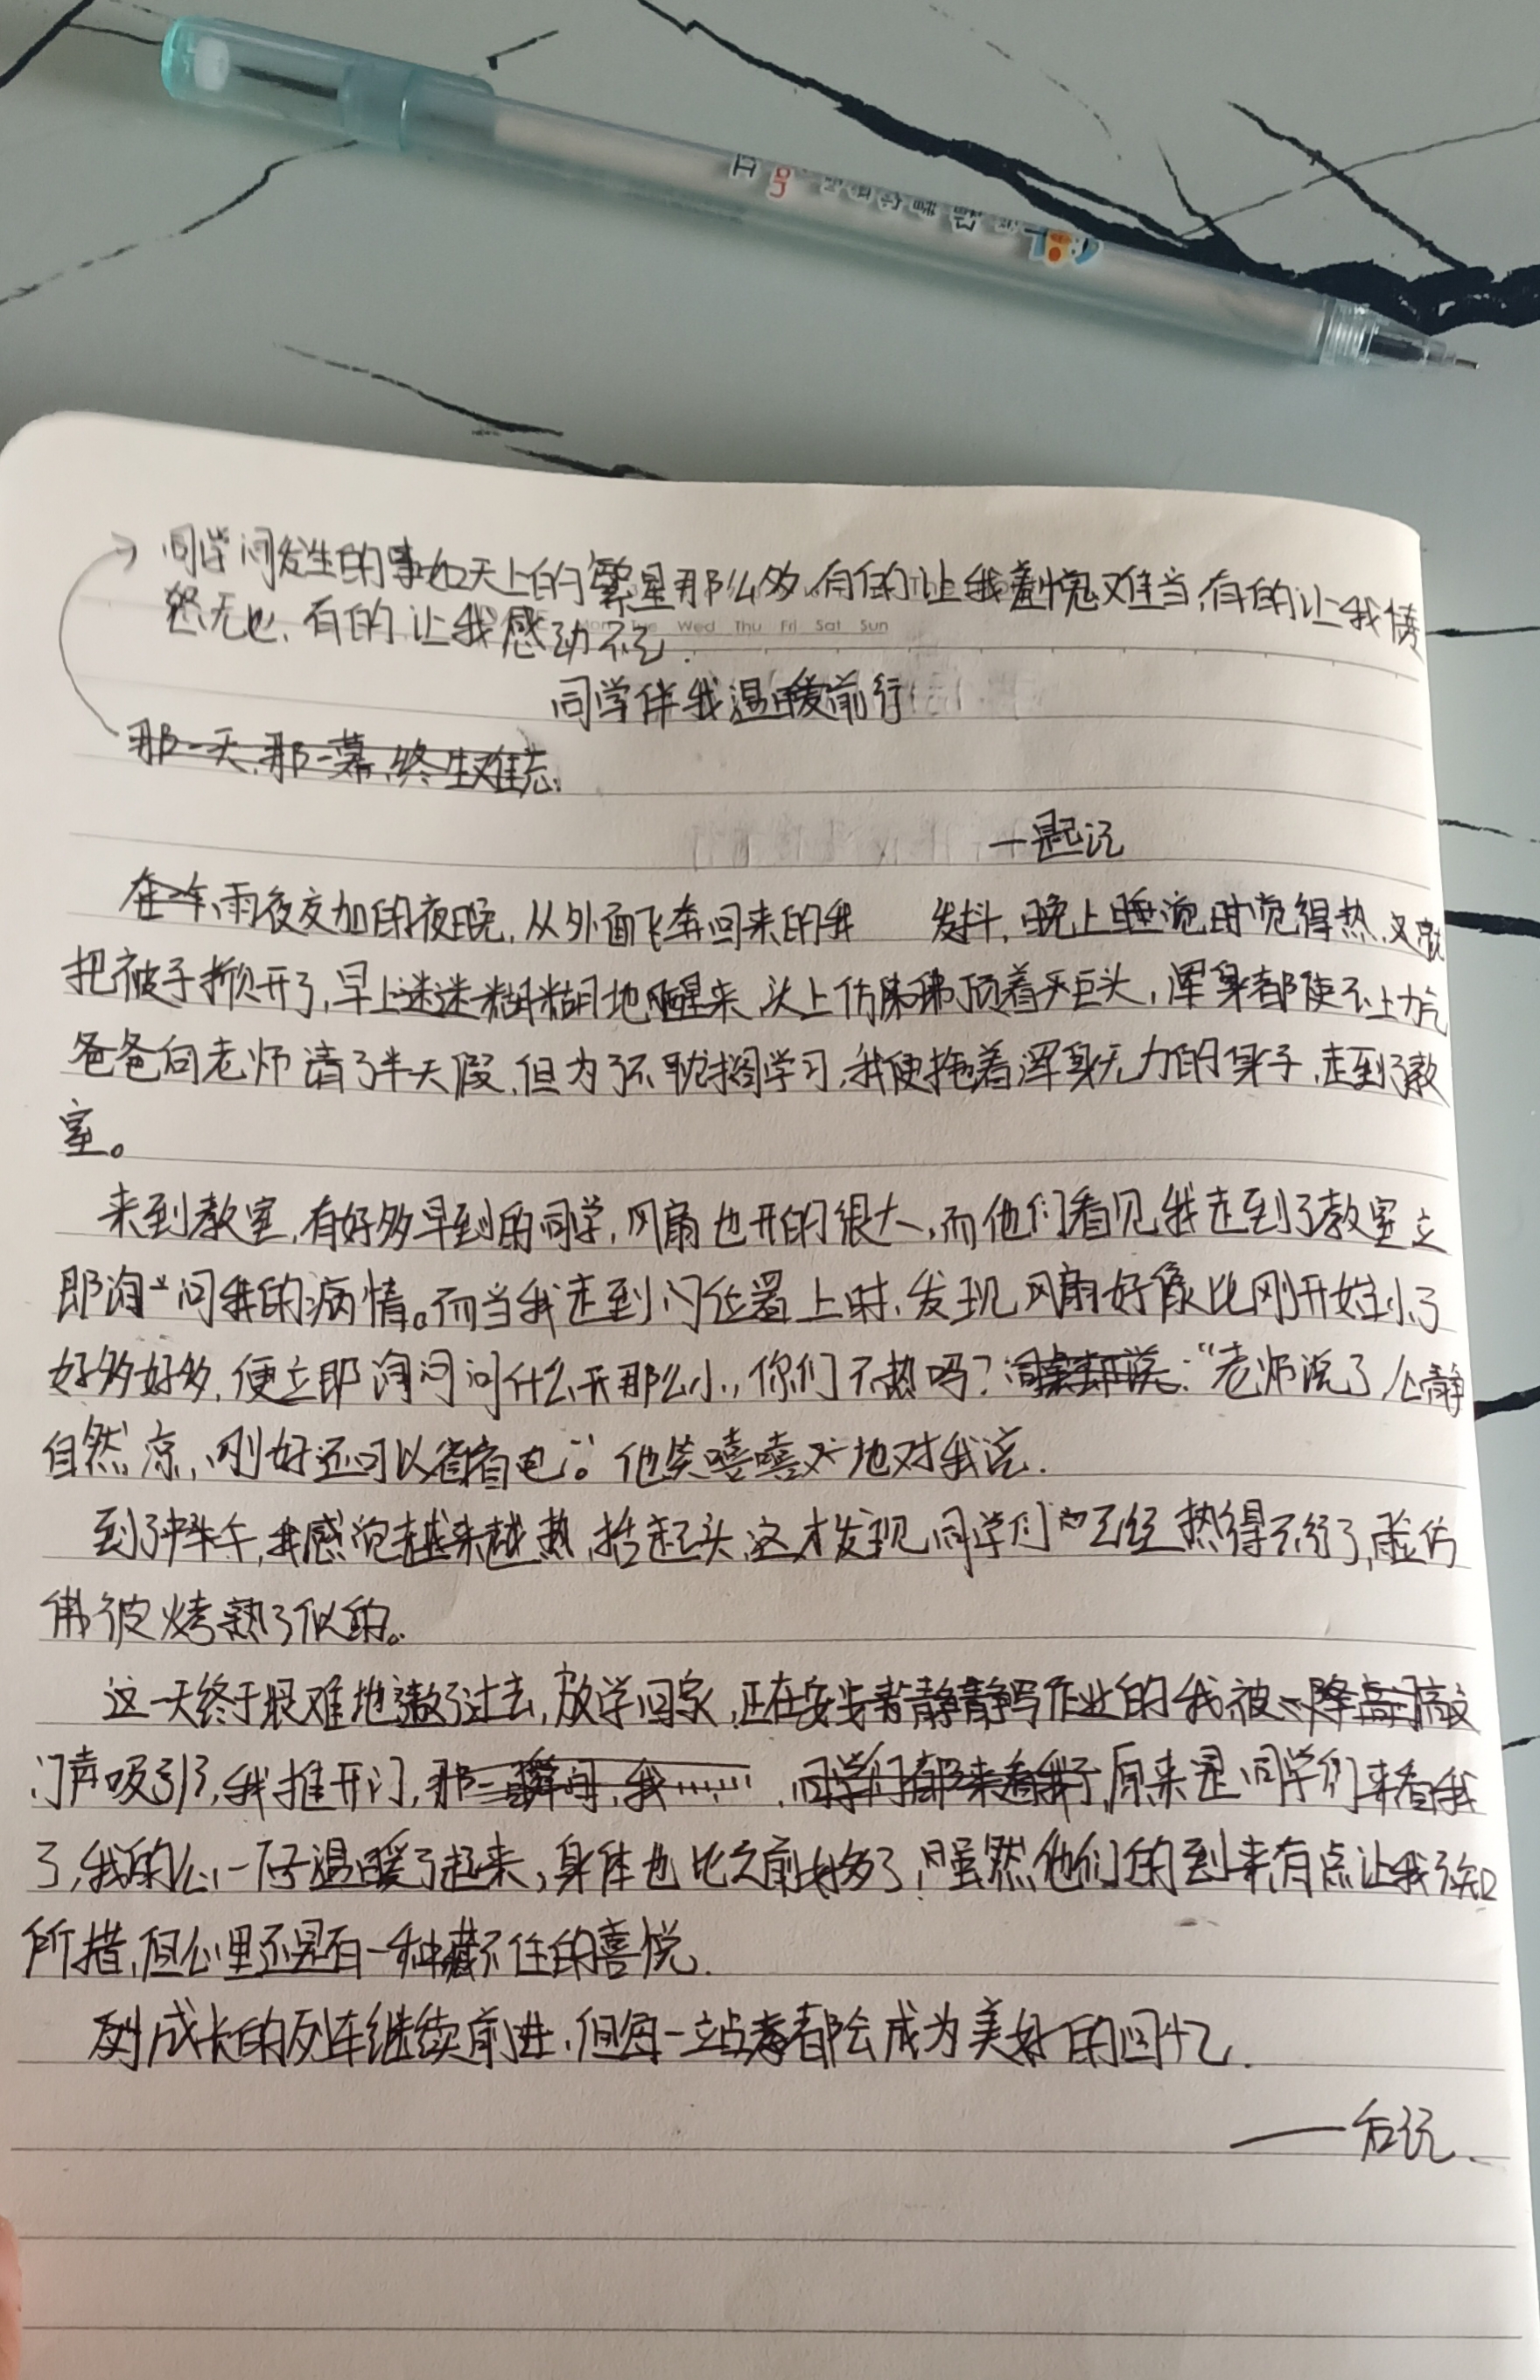 同学间发生的事如天上的繁星那么多,有的让我羞愧难当,有的让我情
怒无比,有的让我感动不已.
Wed Thu Fri Sat Sun
同学伴我温暖前行
那一天,那一幕,终生难忘.
一题记
在一个雨夜交加的夜晚,从外面飞奔回来的我 发抖,晚上睡觉时觉得热,又就
把被子掀开了,早上迷迷糊糊地醒来,头上仿佛顶着千巨头,浑身都使不上力气
爸爸向老师请了半天假,但为了不耽搁学习,我便拖着浑身无力的身子,走到了教
室。
来到教室,有好多早到的同学,风扇也开的很大,而他们看见我走到了教室立
即询问我的病情。而当我走到位置上时,发现风扇好像比刚开始小了
好多好多,便立即询问问什么开那么小,你们不热吗?:“老师说了心静
自然凉,刚好还可以省省电。”他笑嘻嘻地对我说.
到了中午,我感觉越来越热,抬起头,这才发现同学们已经热得不行了,脸仿
佛被烤熟了似的。
这一天终于艰难地熬了过去,放学回家,正在安安静静写作业的我被一阵敲
门声吸引了,我推开门,那一瞬间,我……,同学们都来看我了,原来是同学们来看我
了,我的心一下子温暖了起来,身体也比之前好多了,虽然他们的到来有点让我不知
所措,但心里还是有一种藏不住的喜悦.
成长的列车继续前进,但每一站都会成为美好的回忆.
——后记.